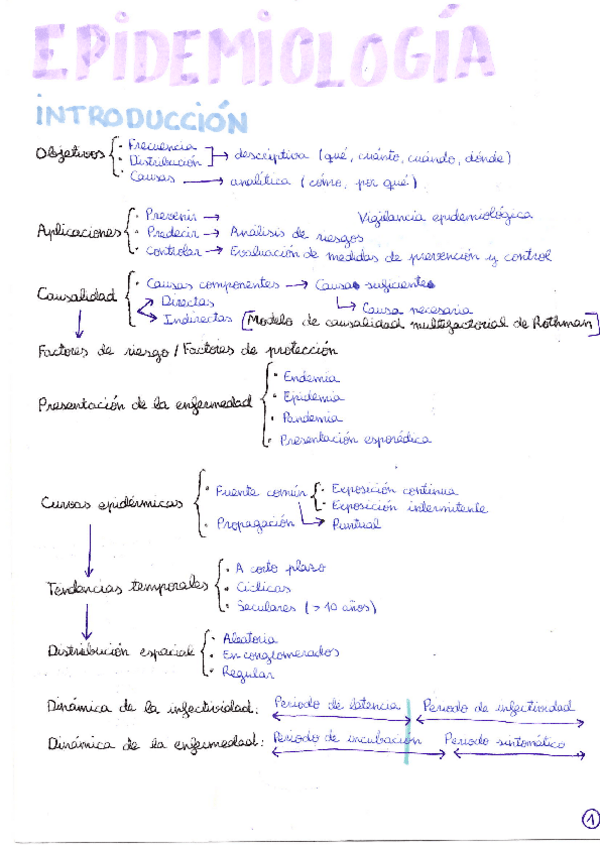 EPIDEMIOLOGÍA
INTRODUCCIÓN
Objetivos
· Frecuencia
· Distribución → descriptiva (qué, cuánto, cuándo, dónde)
· Causas → analítica (cómo, por qué)
Aplicaciones
· Prevenir → Vigilancia epidemiológica
· Predecir → Análisis de riesgos
· Controlar → Evaluación de medidas de prevención y control
Causalidad
· Causas componentes → Causas suficientes
→ Directas
↳ Causa necesaria
→ Indirectas [Modelo de causalidad multifactorial de Rothman]
Factores de riesgo / Factores de protección
Presentación de la enfermedad
· Endemia
· Epidemia
· Pandemia
· Presentación esporádica
Curvas epidérmicas
· Fuente común
· Exposición continua
· Exposición intermitente
· Propagación
↳ Puntual
Tendencias temporales
· A corto plazo
· Cíclicas
· Seculares (> 10 años)
Distribución espacial
· Aleatoria
· En conglomerados
· Regular
Dinámica de la infectividad: Periodo de latencia Periodo de infectividad
Dinámica de la enfermedad: Periodo de incubación Periodo sintomático
1